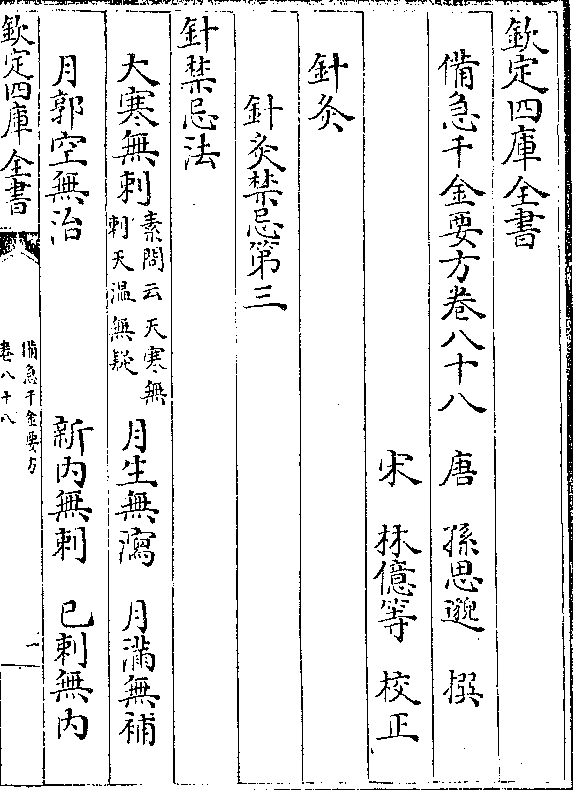 欽定四庫全書
備急千金要方卷八十八
唐 孫思邈 撰
宋 林億等 校正
針灸
針灸禁忌第三
針禁忌法
大寒無刺素問云天寒無刺天温無疑 月生無瀉 月滿無補
月郭空無治 新内無刺 已刺無内
欽定四庫全書
備急千金要方
卷八十八
一